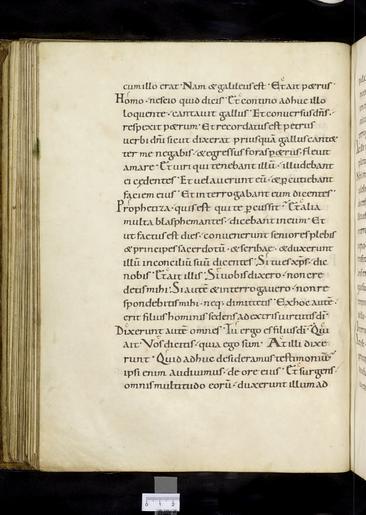 cum illo erat · Nam & galileus est · Et ait petrus
Homo · nescio quid dicis · Et continuo adhuc illo
loquente · cantavit gallus · Et conversus dn̅s ·
respexit petrum · Et recordatus est petrus
verbi dn̅i sicut dixerat priusquā gallus cant&
ter me negabis · & egressus foras petrus · flevit
amare · Et viri qui tenebant illū · illudebant
ei cędentes · Et velaverunt eū · & percutiebant
faciem eius · Et interrogabant eum dicentes ·
Prophetiza · quis est qui te percussit · Et alia
multa blasphemantes · dicebant in eum · Et
ut factus est dies · convenerunt seniores plebis
& principes sacerdotū · & scribae · & duxerunt
illū in concilium suū dicentes · Si tu es xp̅s · dic
nobis · Et ait illis · Si vobis dixero · non cre
detis mihi · Si autē & interrogavero · non re
spondebitis mihi · neq; dimittetis · Ex hoc autē
erit filius hominis sedens ad extris virtutis dī
Dixerunt autē omnes · Tu ergo es filius dī · Qui
ait · Vos dicitis · quia ego sum · At illi dixe
runt · Quid adhuc desideramus testimoniū
ipsi enim audivimus · de ore eius · Et surgens
omnis multitudo eorū · duxerunt illum ad